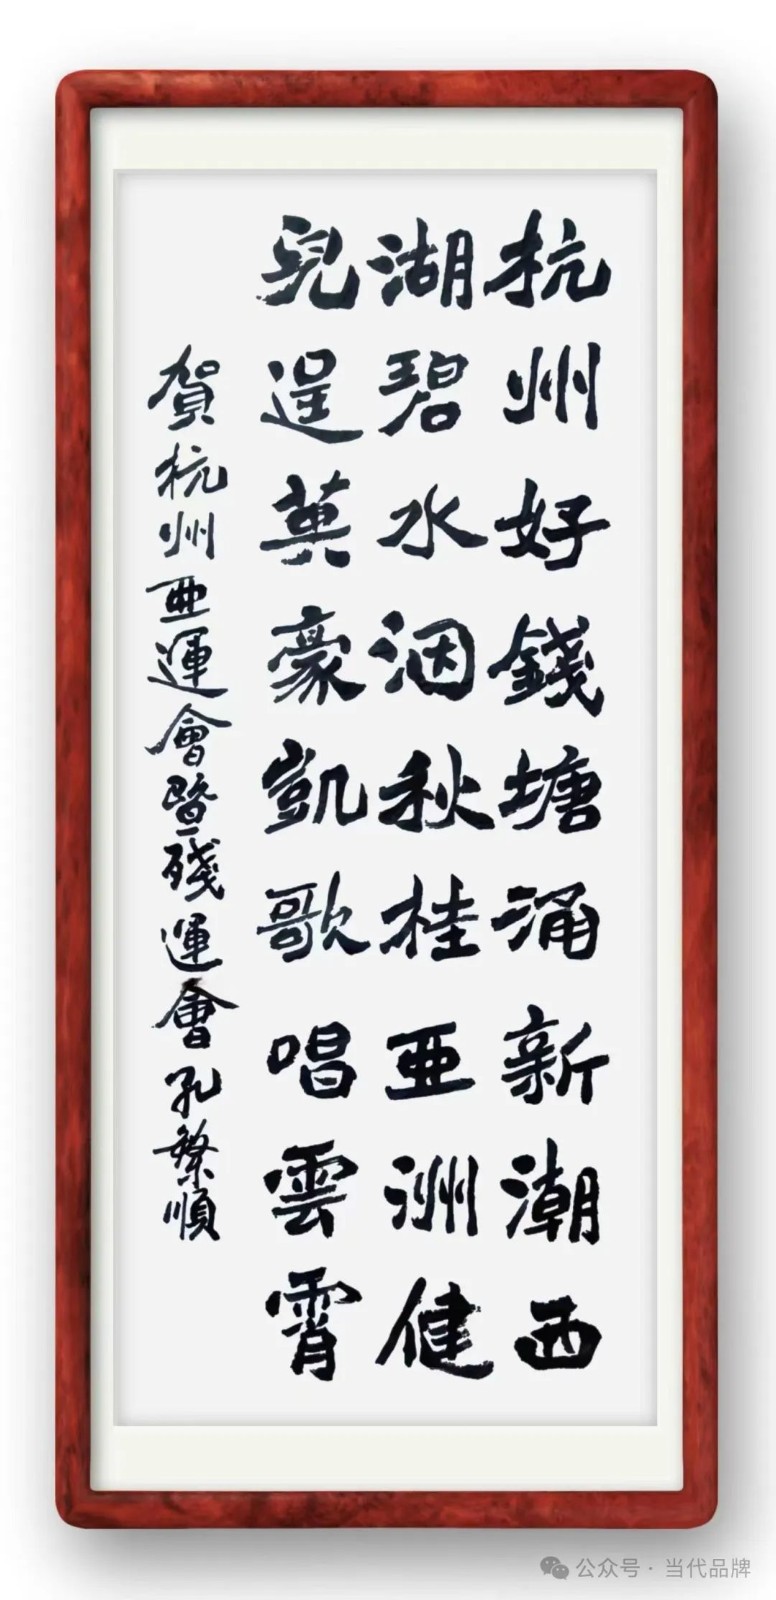 杭州好錢塘涌新潮西
湖碧水洇秋桂亞洲健
兒逞英豪凱歌唱雲霄
賀杭州亞運會暨殘運會孔繁順
公众号·当代品牌